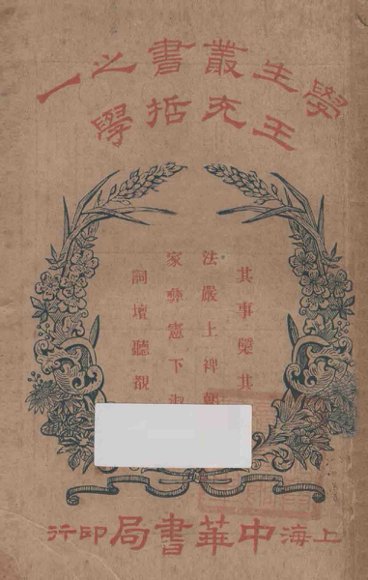 學生叢書之一
王充哲學
其事槩其
法嚴上裨朝
家彝憲下淑
詞壇聽觀
上海中華書局印行